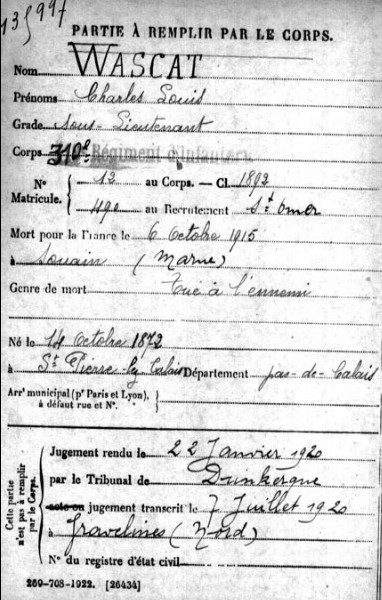 135997
PARTIE À REMPLIR PAR LE CORPS.
Nom WASCAT
Prénoms Charles Louis
Grade Sous-Lieutenant
Corps 310e Régiment d'infanterie
N° Matricule. { 12 au Corps. — Cl. 1892
490 au Recrutement St Omer
Mort pour la France le 6 Octobre 1915
à Souain (Marne)
Genre de mort Tué à l'ennemi
Né le 14 Octobre 1872
à St Pierre-lez-Calais Département pas-de-Calais
Arrt municipal (pr Paris et Lyon), à défaut rue et N°.
Cette partie n'est pas à remplir par le Corps.
Jugement rendu le 22 Janvier 1920
par le Tribunal de Dunkerque
acte ou jugement transcrit le 7 Juillet 1920
à Gravelines (Nord)
N° du registre d'état civil
269-708-1922. [26434]